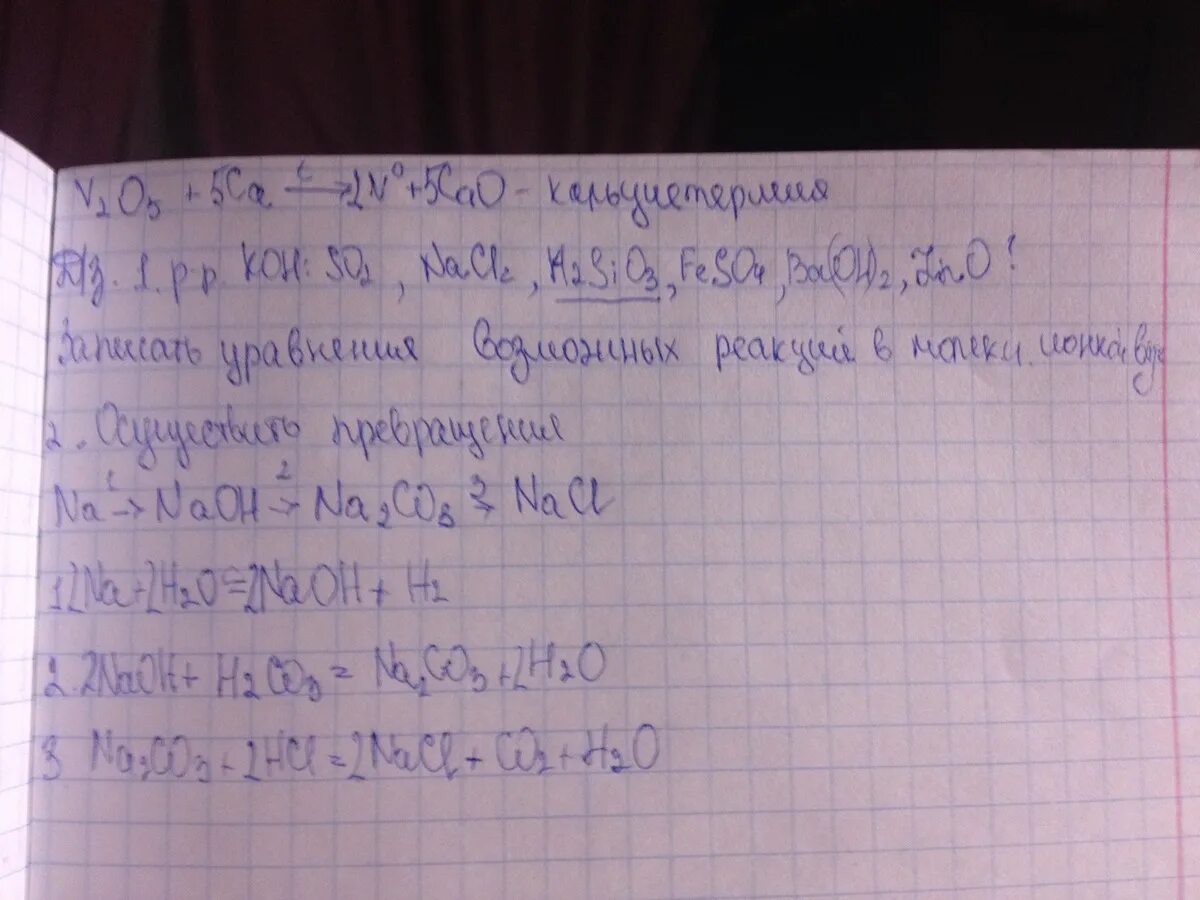 V₂O₅ + 5Ca →ᵗ 2V⁰ + 5CaO - кальциетермия
Д/з. 1. р-р KOH: SO₂, NaCl₂, H₂SiO₃, FeSO₄, Ba(OH)₂, ZnO!
Записать уравнения возможных реакций в молеку. ионном виде
2. Осуществить превращения
Na ¹→ NaOH ²→ Na₂CO₃ ³→ NaCl
1. 2Na + 2H₂O = 2NaOH + H₂
2. 2NaOH + H₂CO₃ = Na₂CO₃ + 2H₂O
3 Na₂CO₃ + 2HCl = 2NaCl + CO₂ + H₂O